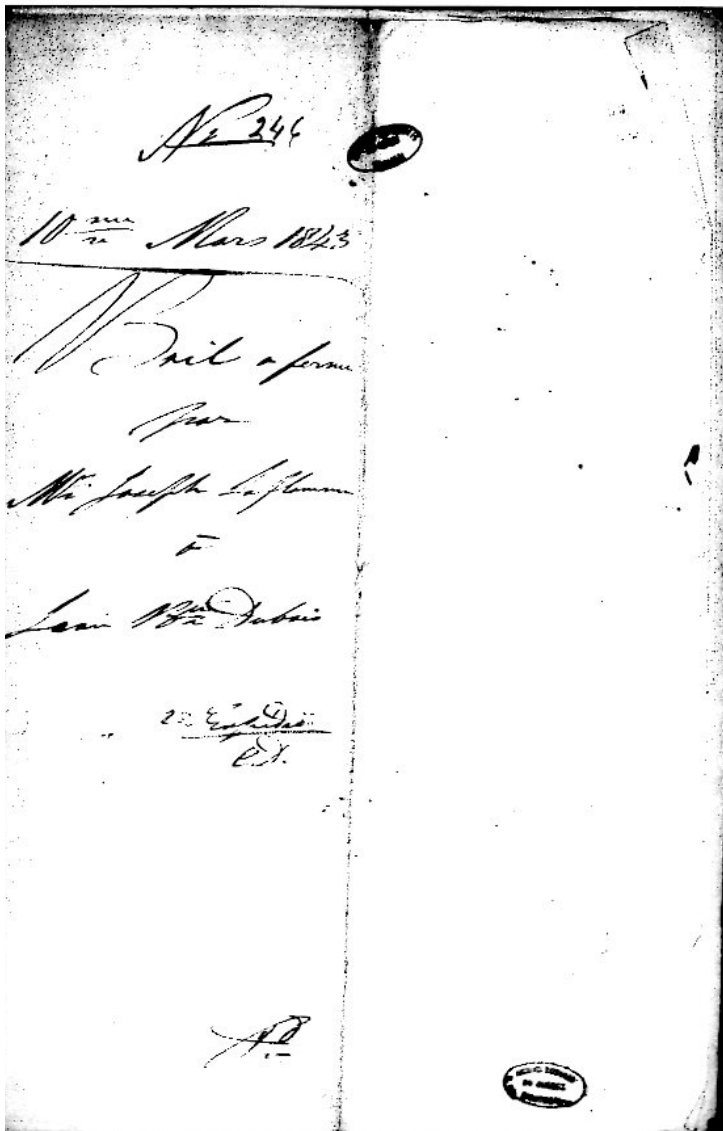 No 246
10me Mars 1843
Bail a ferme
par
Mr Joseph Laflamme
à
Jean Bte Dubois
2 Expédié